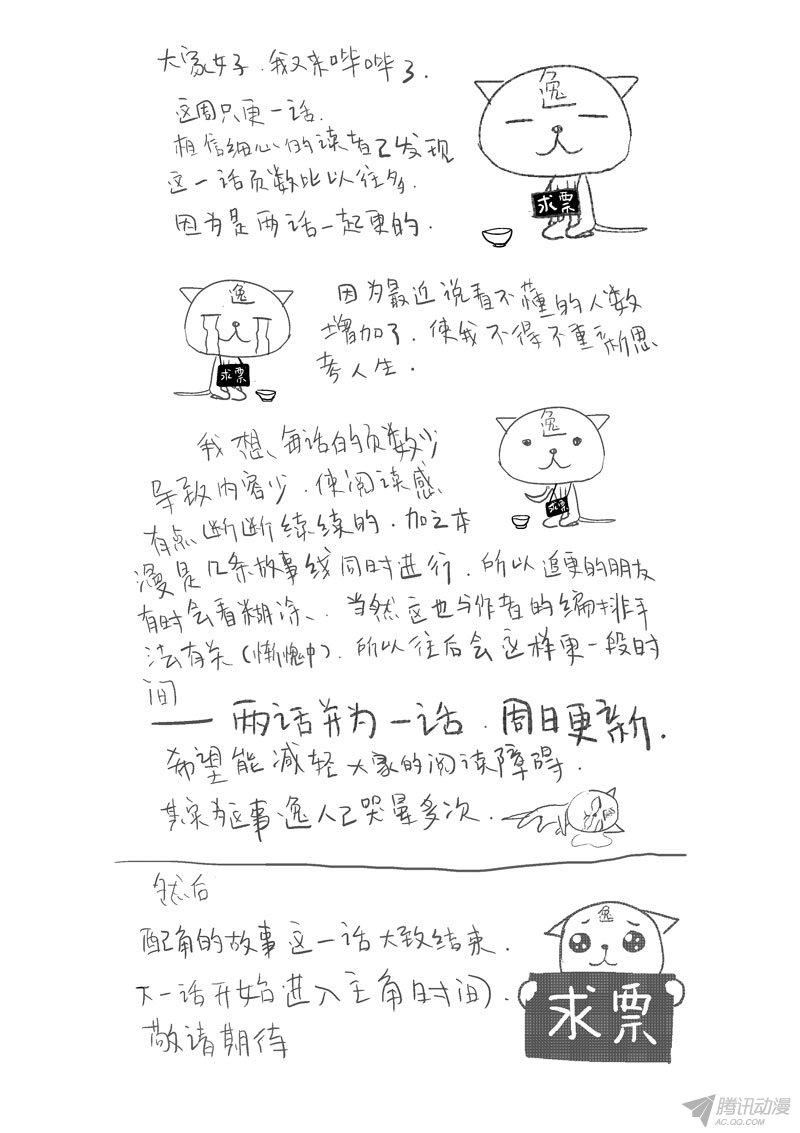 大家好，我又来哔哔了．
逸
这周只更一话．
相信细心的读者已发现
这一话页数比以往多．
求票
因为是两话一起更的．
逸
因为最近说看不懂的人数
增加了．使我不得不重新思
考人生．
求票
逸
我想、每话的页数少
导致内容少．使阅读感
有点断断续续的．加之本
求票
漫是几条故事线同时进行．所以追更的朋友
有时会看糊涂、．当然这也与作者的编排手
法有关（惭愧中）．所以往后会这样更一段时
间
——两话并为一话．周日更新．
希望能减轻大家的阅读障碍．
其实为这事逸人已哭晕多次．
然后
逸
配角的故事这一话大致结束．
下一话开始进入主角时间）．
敬请期待
求票
腾讯动漫
AC.QQ.COM